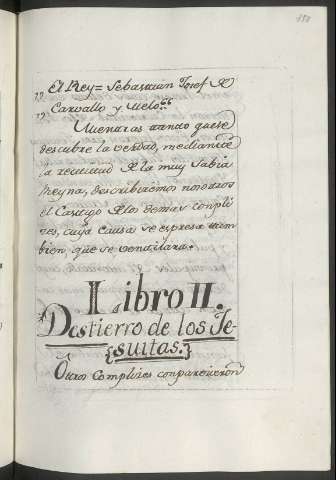 El Rey = Sebastian Josef de
Carvallo y Melo.
Mientras tanto que se
descubre la verdad, mediante
la rectitud de la muy Sabia
Reyna, describirémos nosotros
el Castigo de los demas compli
zes, cuya causa se espresa tam
bien, que se ventilara.
Libro II.
Destierro de los Je-
suitas.
Otros Complices comparecieron